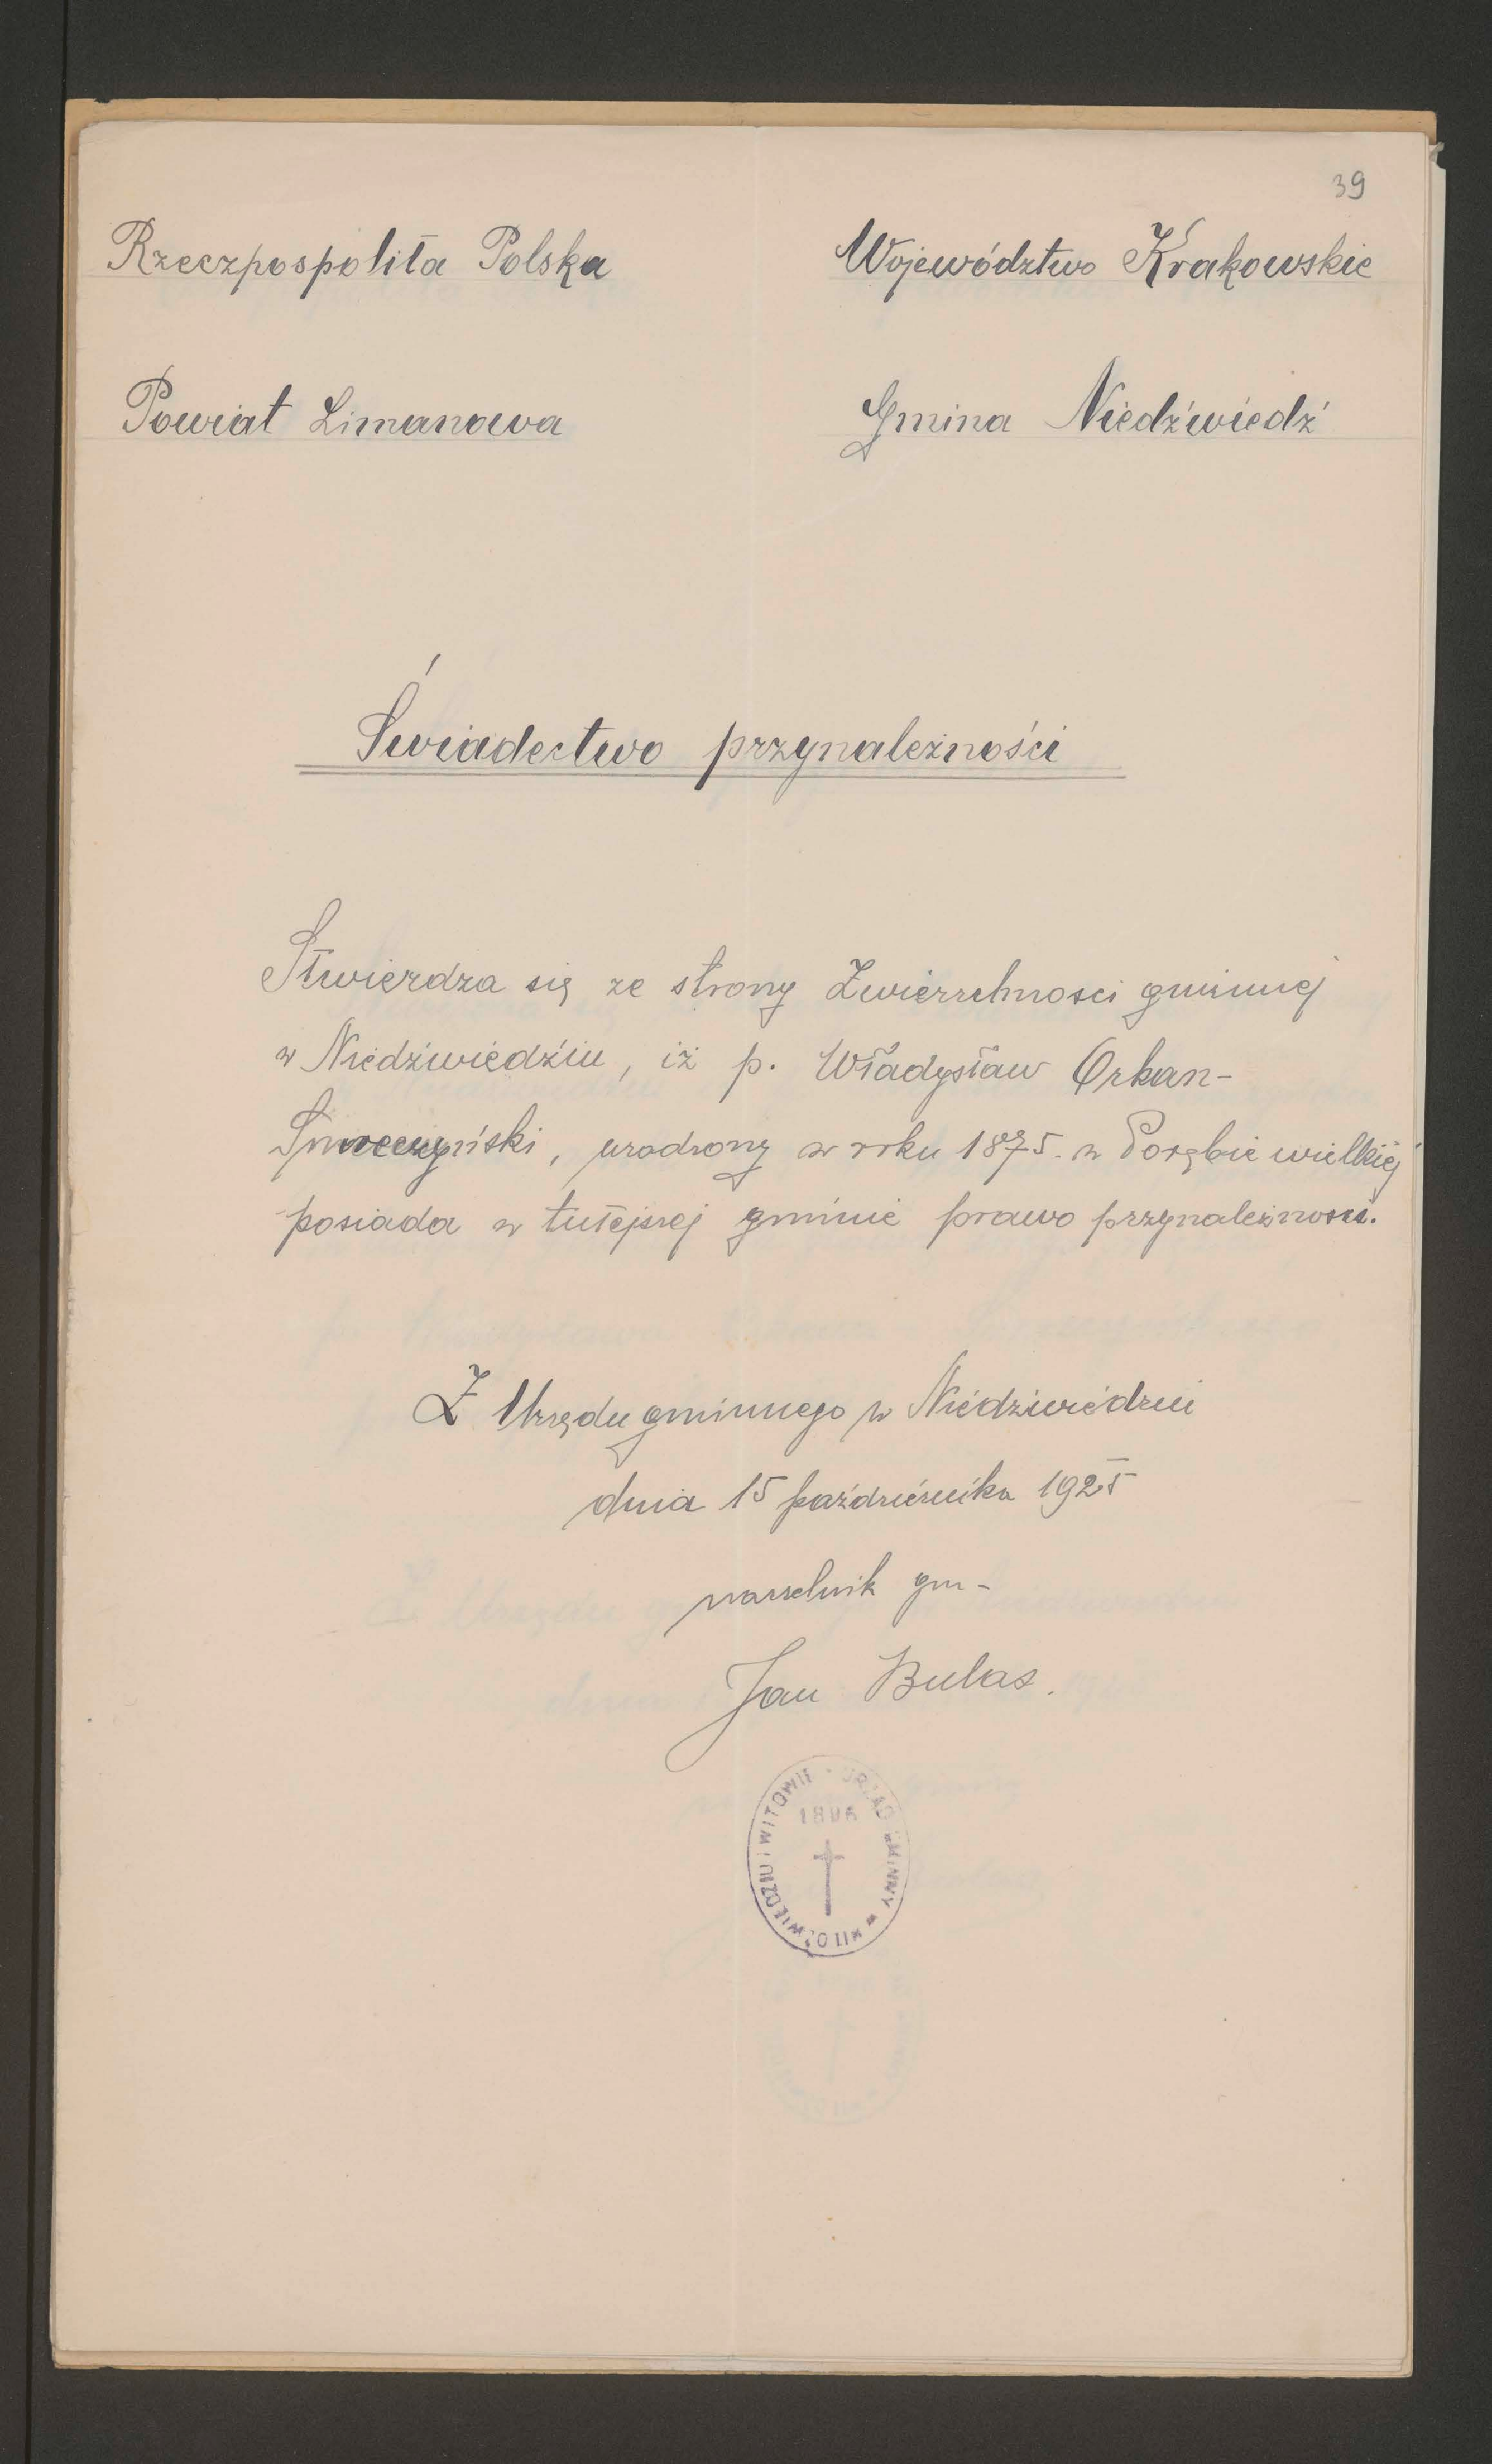 39
Rzeczpospolita Polska
Województwo Krakowskie
Powiat Limanowa
Gmina Niedźwiedź
Świadectwo przynależności
Stwierdza się ze strony Zwierzchnosci gminnej
w Niedźwiedziu, iż p. Władysław Orkan-
Smreczyński, urodzony w roku 1875. w Porębie wielkiej
posiada w tutejszej gminie prawo przynależności.
Z Urzędu gminnego w Niedźwiedziu
dnia 15 października 1925
naczelnik gm-
Jan Bulas.
URZĄD GMINNY w NIEDŹWIEDZIU i WITOWIE
1896